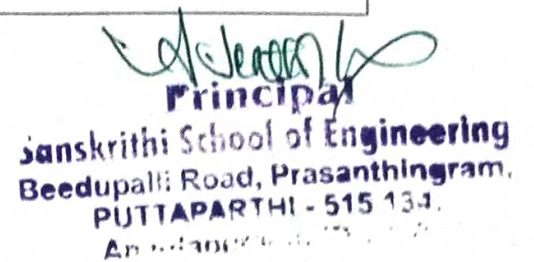 Principal
Sanskrithi School of Engineering
Beedupalli Road, Prasanthingram,
PUTTAPARTHI - 515 134.